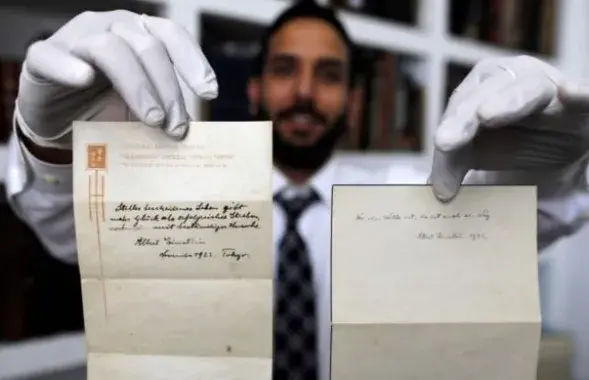 Stilles bescheidenes Leben gibt
mehr Glück als erfolgreiches Streben
mit beständiger Unruhe.
Albert Einstein
1922. Tokyo.
Wo ein Wille ist, da ist auch ein Weg
Albert Einstein 1922.